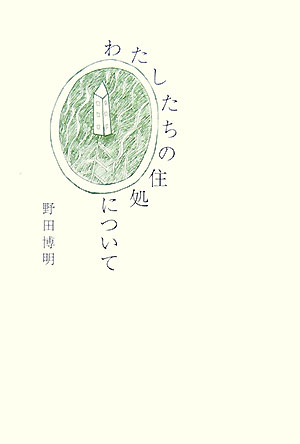 わたしたちの住処について
野田博明